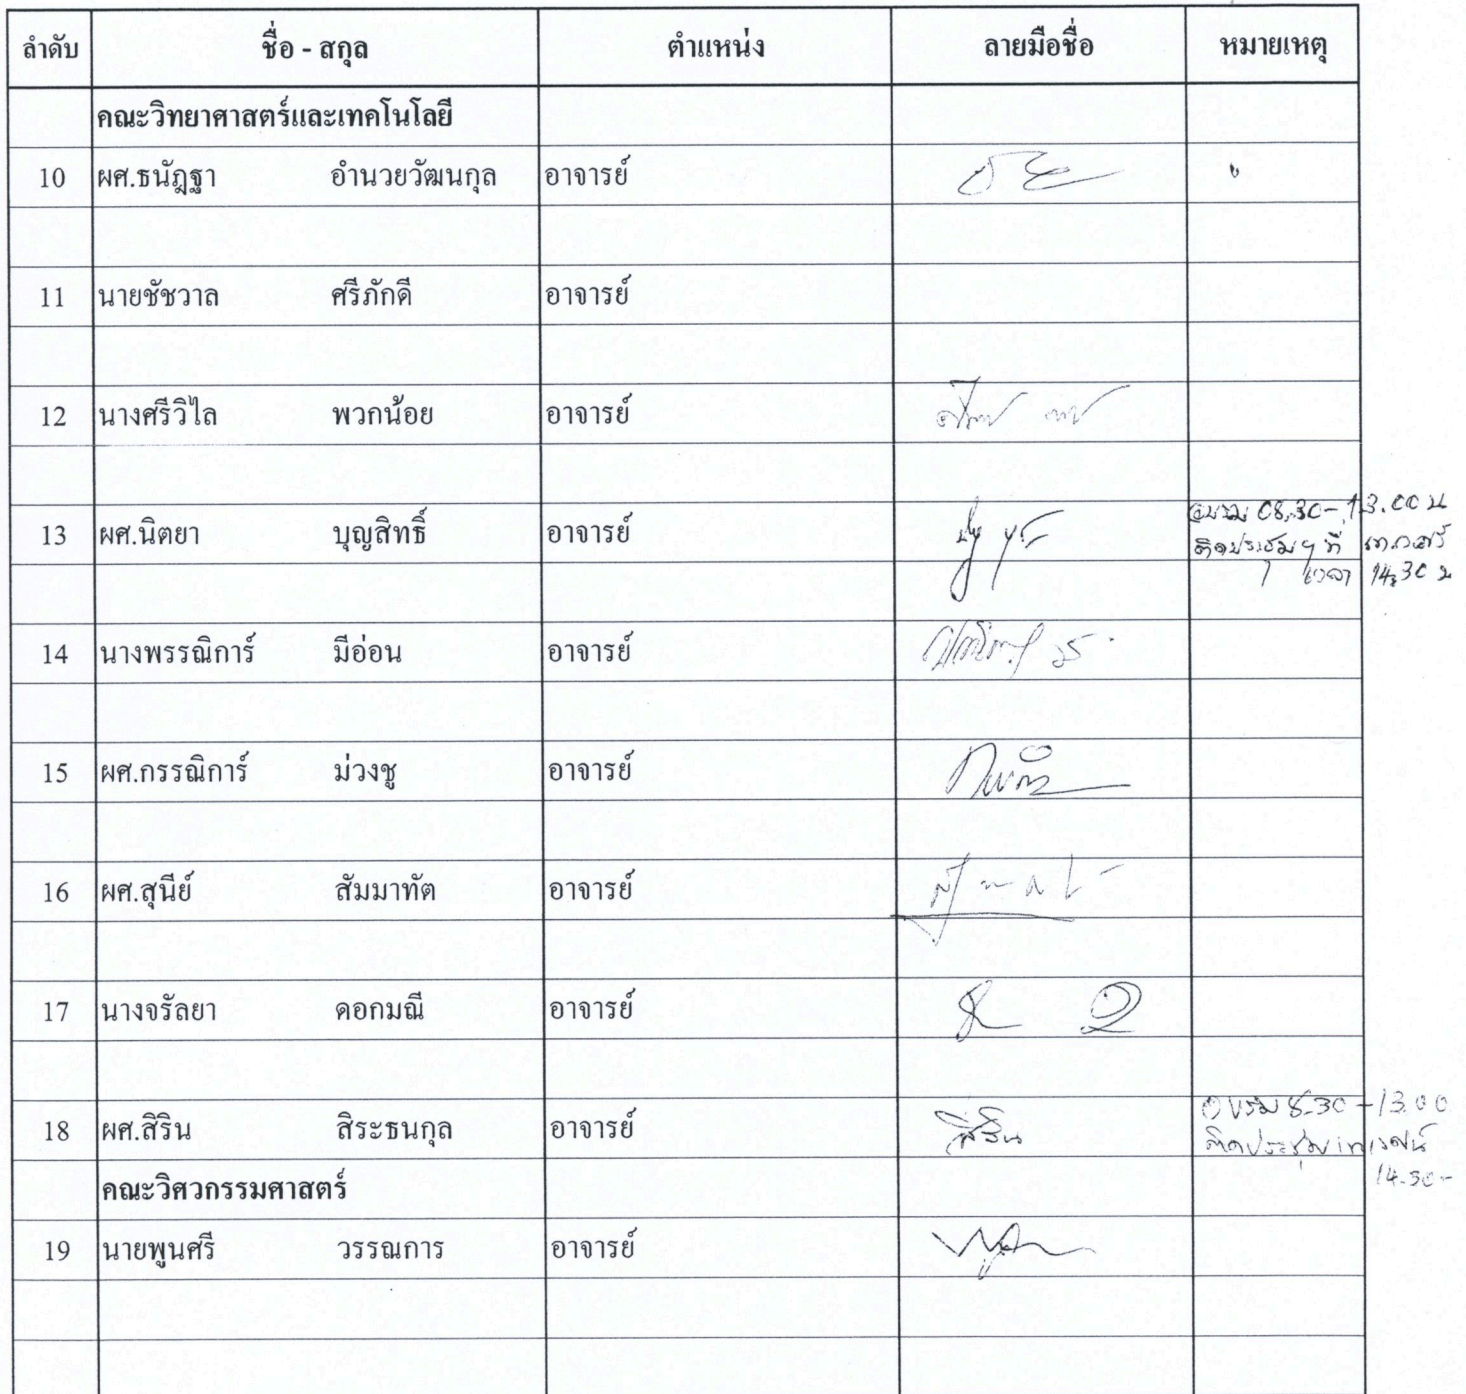 ลำดับ ชื่อ - สกุล ตำแหน่ง ลายมือชื่อ หมายเหตุ
คณะวิทยาศาสตร์และเทคโนโลยี
10 ผศ.ธนัฎฐา อำนวยวัฒนกุล อาจารย์
11 นายชัชวาล ศรีภักดี อาจารย์
12 นางศรีวิไล พวกน้อย อาจารย์
อบรม 08.30-13.00 น
13 ผศ.นิตยา บุญสิทธิ์ อาจารย์
ติดประชุม ที่
เวลา 14.30 น
14 นางพรรณิการ์ มีอ่อน อาจารย์
15 ผศ.กรรณิการ์ ม่วงชู อาจารย์
16 ผศ.สุนีย์ สัมมาทัต อาจารย์
17 นางจรัลยา ดอกมณี อาจารย์
18 ผศ.สิริน สิระธนกุล อาจารย์ สิริน อบรม 8.30-13.00
ติดประชุม
14.30-
คณะวิศวกรรมศาสตร์
19 นายพูนศรี วรรณการ อาจารย์